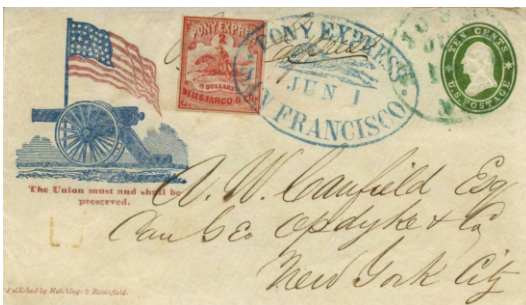 PONY EXPRESS
2
DOLLARS
WELLS, FARGO & Co
PONY EXPRESS
JUN 1
SAN FRANCISCO
TEN CENTS
U.S. POSTAGE
The Union must and shall be
preserved.
A. W. Canfield Esq
Care Geo Opdyke & Co
New York City
Published by Hutchings & Rosenfield.